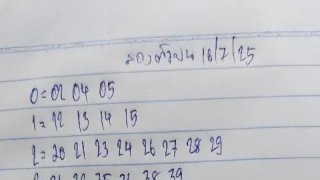 สองตัวบน 16/7/25
0=02 04 05
1=12 13 14 15
2=20 21 23 24 26 27 28 29
38 39